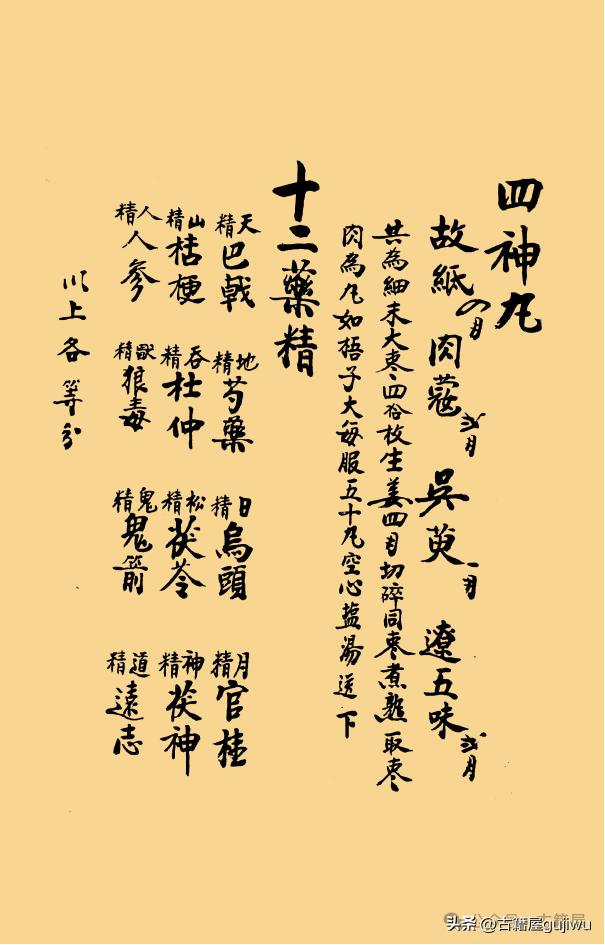 四神丸
故紙 四月 肉蔻 弍月 吳萸 一月 遼五味 弍月
共為細末大枣四拾枚生姜四月切碎同枣煮熟取枣
肉為丸如梧子大每服五十丸空心盐湯送下
十二藥精
天精 巴戟 地精 芍藥 日精 烏頭 月精 官桂
山精 桔梗 吞精 杜仲 松精 茯苓 神精 茯神
人精 人參 獸精 狼毒 鬼精 鬼箭 道精 遠志
以上各等分
头条 @古籍屋gujiwu